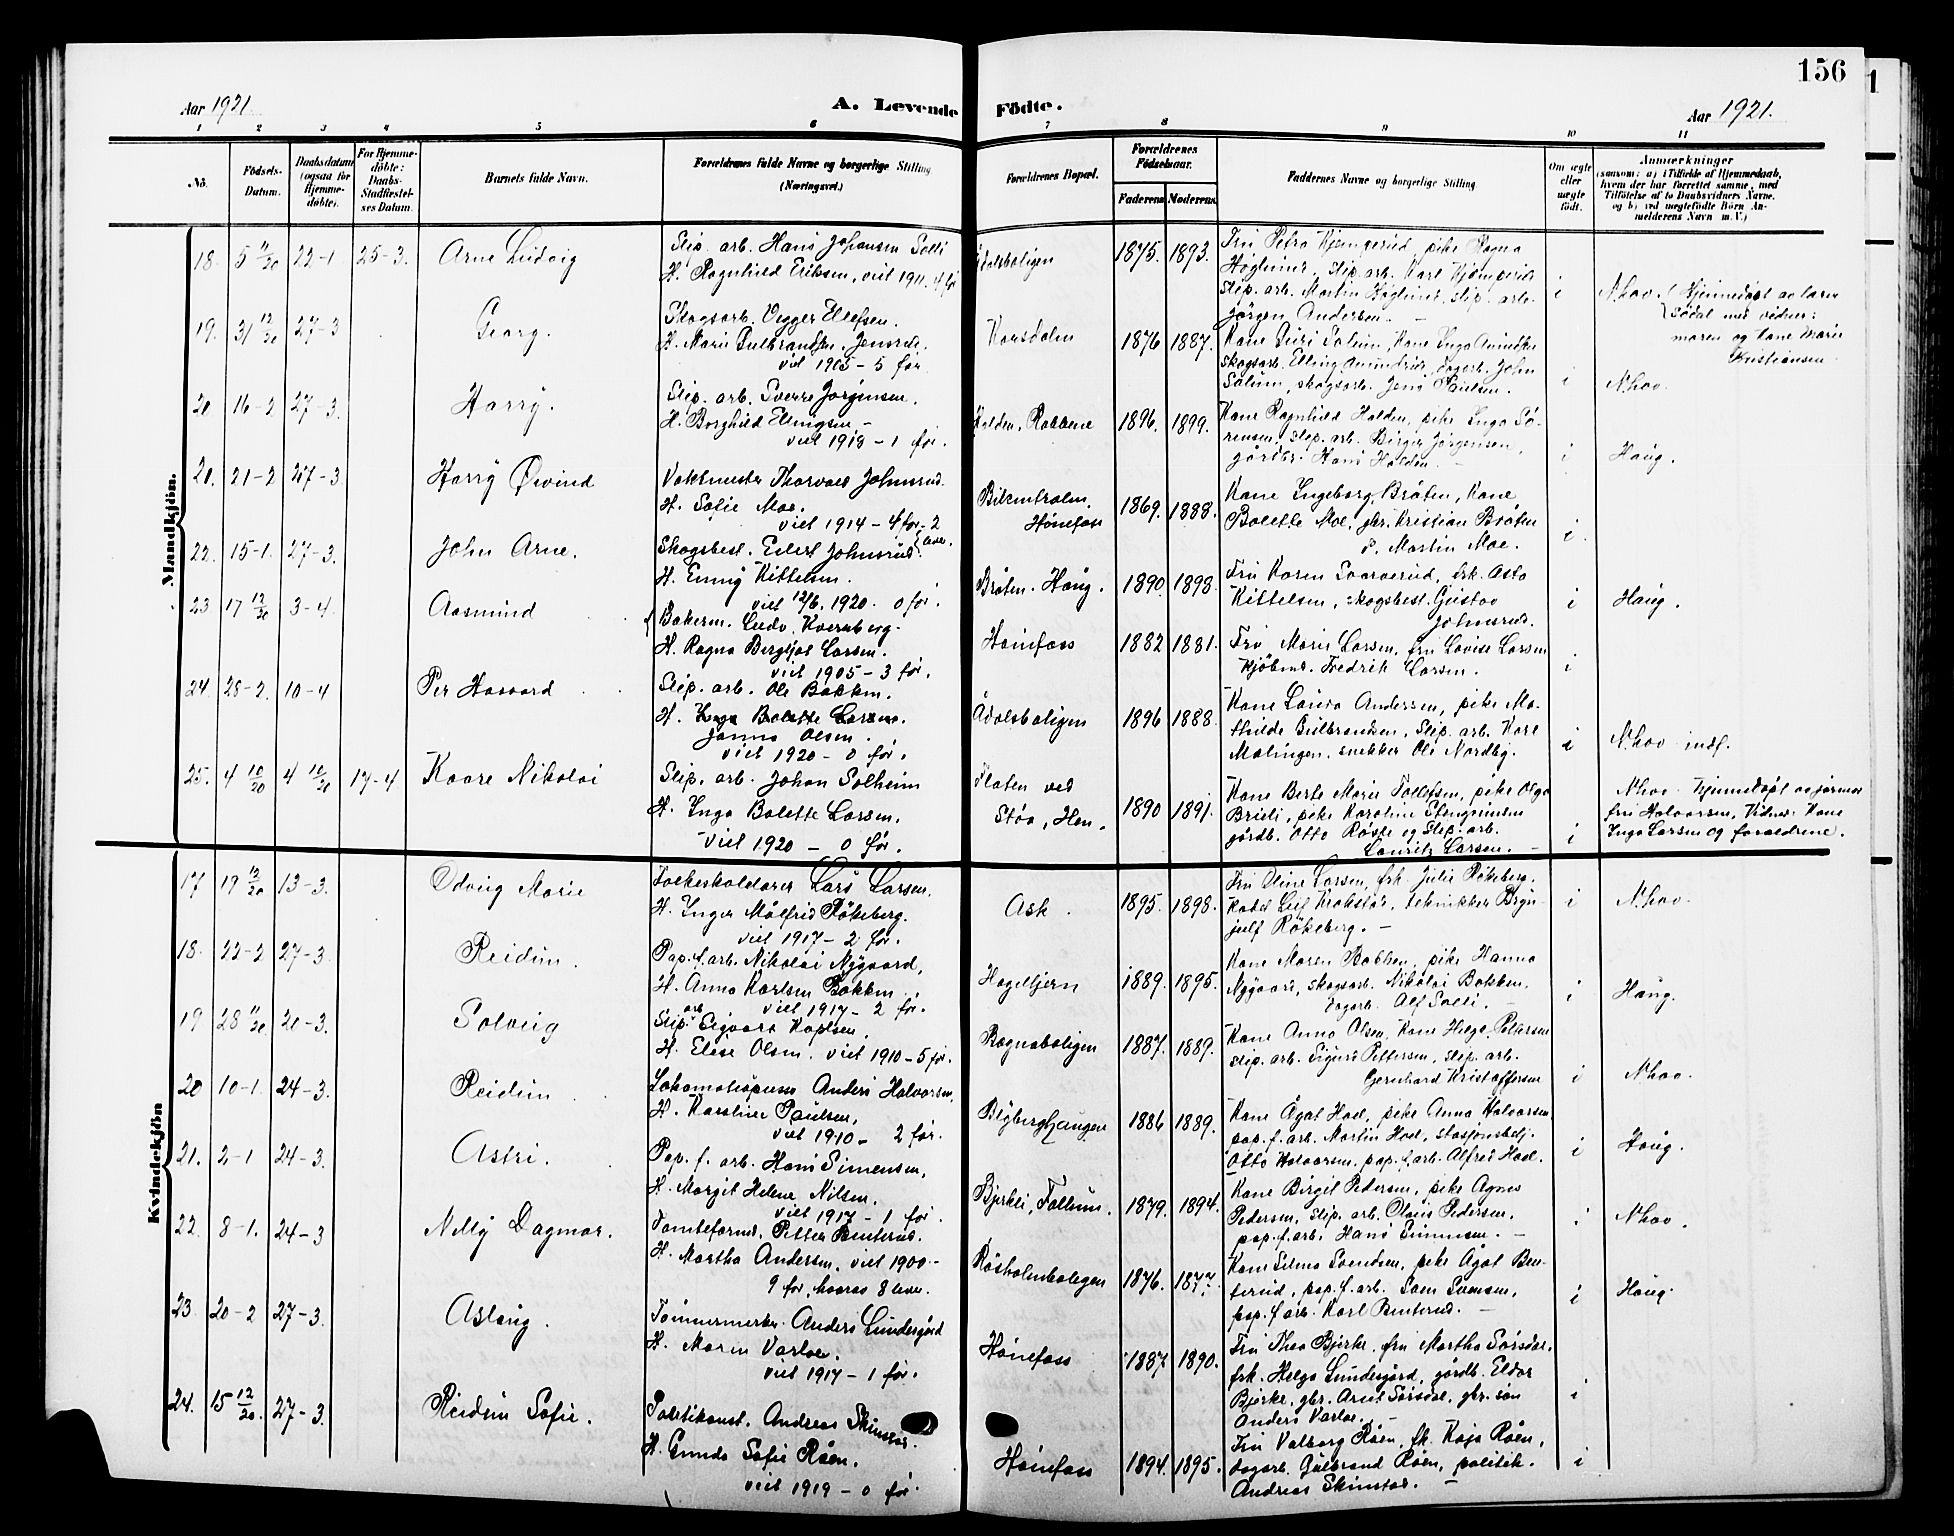 156
Aar 1921.
A. Levende Födte.
Aar 1921.
1 2 3 4 5 6 7 8 9 10 11
No.
Födsels-Datum.
Daabsdatum (ogsaa for Hjemmedöbte).
For Hjemmedöbte: Daabs-Stadfæstelses Datum.
Barnets fulde Navn.
Forældrenes fulde Navne og borgerlige Stilling (Næringsvei.)
Forældrenes Bopæl.
Forældrenes Födselsaar.
Faderens Moderens
Faddernes Navne og borgerlige Stilling
Om ægte eller uægte födt.
Anmærkninger
(saasom: a) i Tilfælde af Hjemmedaab, hvem der har forrettet samme, med Tilföielse af to Daabsvidners Navne. og b) ved uægtefödte Börn Anmelderens Navn m. V.)
Mandkjön.
18. 5 11/20 22-1 25-3. Arne Ludvig
Slip. arb. Hans Johansen Solli
H. Ragnhild Eriksen, viet 1911. 4 før
Ådalsboligen 1875. 1893.
Fru Petra Kjemperud, pike Ragna
Høglund, slip. arb. Karl Kjemperud
slip. arb. Martin Høglund, slip. arb.
Jörgen Andersen. i
N.hov. (Hjemmedøpt av lærer
Sødal med vidner:
moren og Kone Marie
Kristiansen.
19. 31 12/20 27-3 Georg.
Skogsarb. Vegger Ellefsen.
H. Marie Gulbrandsen, Jensrud.
viet 1905 - 5 før
Korsdalen 1876 1887.
Kone Guri Solum, Kone Inga Amundsen
skogsarb. Elling Amundrud, dagarb. John
Solum, skogsarb. Jens Paulsen. i N.hov.
20 16-2 27-3. Harry.
Slip. arb. Sverre Jørgensen.
H. Borghild Ellingsen -
viet 1918 - 1 før.
Halden, Rabbene 1896. 1899.
Kone Ragnhild Halden, pike Inga Sö-
rensen, slip. arb. Birger Jørgensen,
gårdbr. Hans Halden. i Haug.
20. 21-2 27-3 Harry Øivind
Vaktmester Thorvald Johnsrud
H. Sofie Moe.
viet 1914 - 4 før - 2 lever.
Bilcentralen, Hønefoss 1869. 1888.
Kone Ingeborg Bråten, Kone
Bolette Moe, gbr. Kristian Bråten
P. Martin Moe. i.
22. 15-1. 27-3. John Arne.
Skogsbest. Edert Johnsrud
H. Emmy Kittelsen.
viet 12/6. 1920. 0 før.
Bråten. Haug. 1890 1898.
Fru Karen Svarverud, frk. Asta
Kittelsen, skogsbest. Gustav
Johnsrud. i Haug.
23 17 12/20 3-4. Aasmund
Bakerm. Ludv. Kvernberg.
H. Ragna Bergljot Larsen.
viet 1905 - 3 før.
Hønefoss 1882 1881.
Fru Marie Larsen, fru Lovise Larsen
Kjøbmd. Fredrik Larsen. i
24. 28-2. 10-4 Per Haavard
Slip. arb. Ole Bakken.
H. Inga Bolette Larsen.
Janna Olsen.
viet 1920 - 0 før.
Ådalsboligen 1896 1888.
Kone Laura Andersen, pike Ma-
thilde Gulbrandsen, slip. arb. Karl
Malingen, snekker Ole Nordby. i N.hov indf.
25. 4 10/20 4 12/20 17-4 Kaare Nikolai
Slip. arb. Johan Solheim
H. Inga Bolette Larsen.
viet 1920 - 0 før.
Floten ved Støa, Hen. 1890 1891.
Kone Berte Marie Tollefsen, pike Olga
Brieli, pike Karoline Stengrimsen
gårdb. Otto Røste og Slip. arb.
Lauritz Larsen. - i
N.hov - Hjemmedøpt av jormor
fru Halvorsen, Vidner: Kone
Inga Larsen og foreldrene.
Kvindekjön
17 19 12/20 13-3. Odveig Marie
Folkeskolelærer Lars Larsen.
H. Inger Målfrid Røkeberg.
viet 1917 - 2 før.
Ask. 1895. 1898.
Fru Oline Larsen, frk. Julie Røkeberg.
Kadet Leif Krokstad, tekniker Bryn-
julf Røkeberg. - i N.hov.
18. 22-2 27-3. Reidun.
Pap. f. arb. Nikolai Nygaard,
H. Anna Karlsen Bakken
viet 1917 - 2 før.
Hageltjern 1889. 1895.
Kone Maren Bakken, pike Hanna
Nygaard, skogsarb. Nikolai Bakken,
dagarb. Alf Solli. i Haug.
19 28 11/20 20-3. Solveig
Slip. arb. Sigvart Karlsen.
H. Elise Olsen. viet 1910 - 5 før.
Bognaboligen 1887. 1889.
Kone Anna Olsen, Kone Helga Pettersen
slip. arb. Sigurd Pettersen, slip. arb.
Gjernhard Kristoffersen i N.hov.
20 10-1. 24-3. Reidun
Lokomotivpusser Anders Halvorsen,
H. Karoline Paulsen,
viet 1910 - 2 før.
Blyberghaugen 1886 1889.
Kone Ågat Hoel, pike Anna Halvorsen
pap. f. arb. Martin Hoel, stasjonsbetj.
Otto Halvorsen, pap. f. arb. Alfred Hoel. i Haug.
21. 2-1 24-3. Astri.
Pap. f. arb. Hans Simensen,
H. Margit Helene Nilsen.
viet 1917 - 1 før.
Bjerkli, Follum. 1879. 1894.
Kone Birgit Pedersen, pike Agnes
Pedersen, slip. arb. Olaus Pedersen,
pap. f. arb. Hans Simensen. - i N.hov.
22. 8-1. 24-3 Nelly Dagmar.
Tomteformd. Petter Benterud.
H. Martha Andersen, viet 1900 -
9 før, hvorav 8 lever.
Røsholmboligen 1876. 1877.
Kone Selma Svendsen, pike Ågot Ben-
terud, pap. f. arb. Sven Svensen,
pap. f. arb. Karl Benterud. - i Haug.
23 20-2 27-3. Aslaug.
Tømmermerker Anders Lundesgård
H. Maren Varloe.
viet 1917 - 1 før.
Hønefoss 1887 1890.
Fru Thea Bjerke, fru Martha Sørsdal.
frk. Helga Lundesgård, gårdb. Eldor
Bjerke, gbr. Arnt Sørsdal, gbr. søn
Anders Varloe. - i
24. 15 12/20. 27-3. Reidun Sofie.
Politikonst. Andreas Skinstad.
H. Gunda Sofie Røen.
viet 1919 - 0 før.
Hønefoss 1894. 1895.
Fru Valborg Røen, frk. Kaja Røen,
dagarb. Gulbrand Røen, politik.
Andreas Skinstad. - i